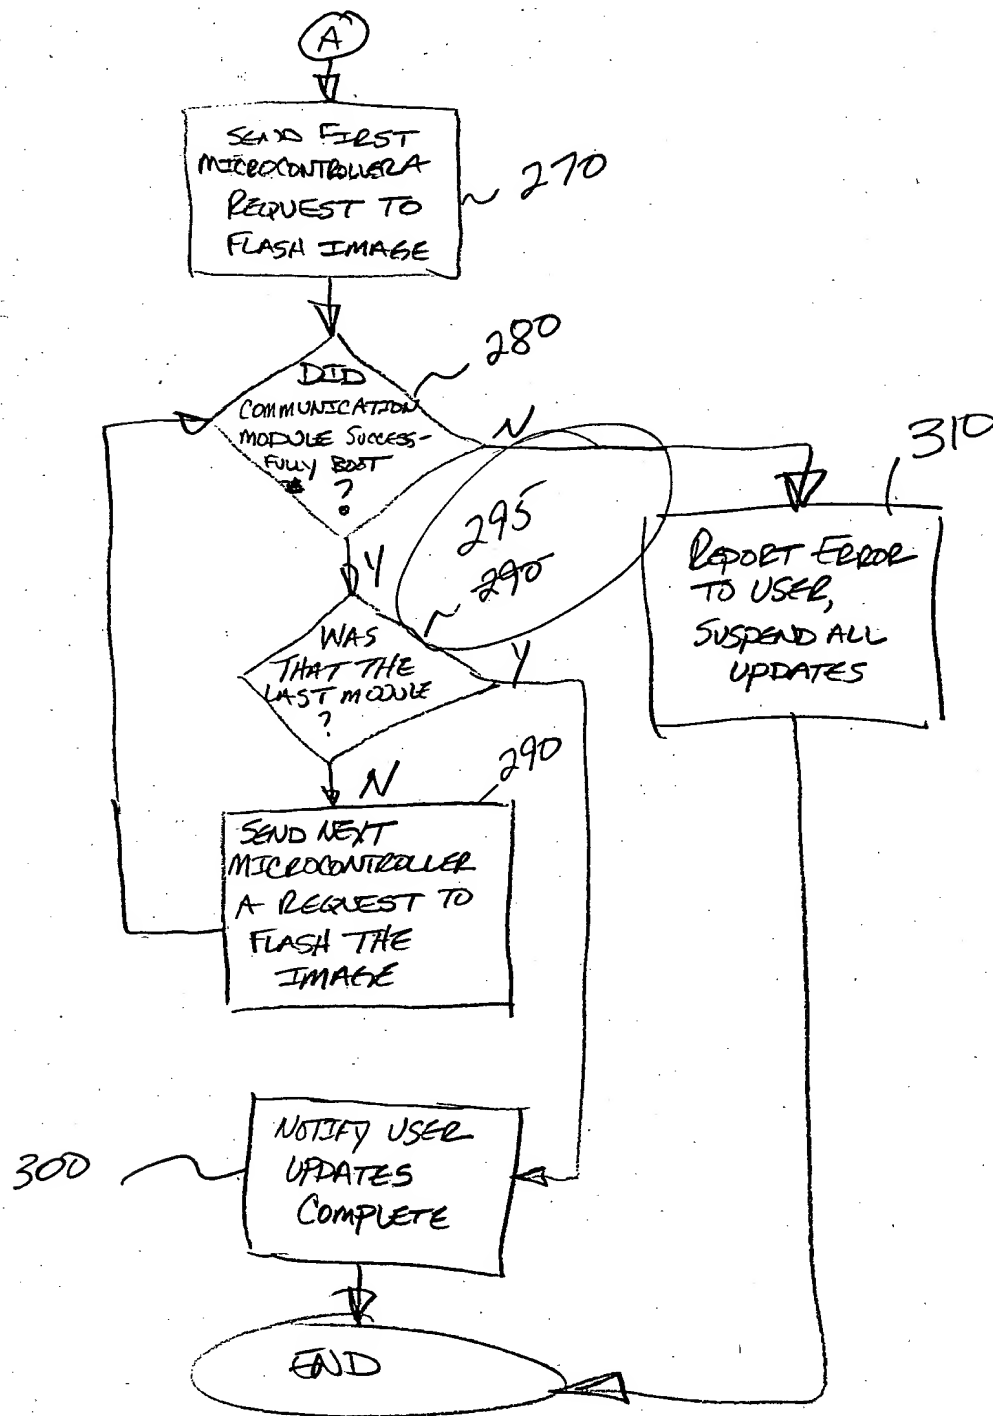 A
SEND FIRST
MICROCONTROLLER A
REQUEST TO
FLASH IMAGE
270
280
DID
COMMUNICATION
MODULE SUCCESS-
FULLY BOOT
?
N
310
295
290
REPORT ERROR
TO USER,
SUSPEND ALL
UPDATES
Y
WAS
THAT THE
LAST MODULE
?
Y
N
290
SEND NEXT
MICROCONTROLLER
A REQUEST TO
FLASH THE
IMAGE
300
NOTIFY USER
UPDATES
COMPLETE
END